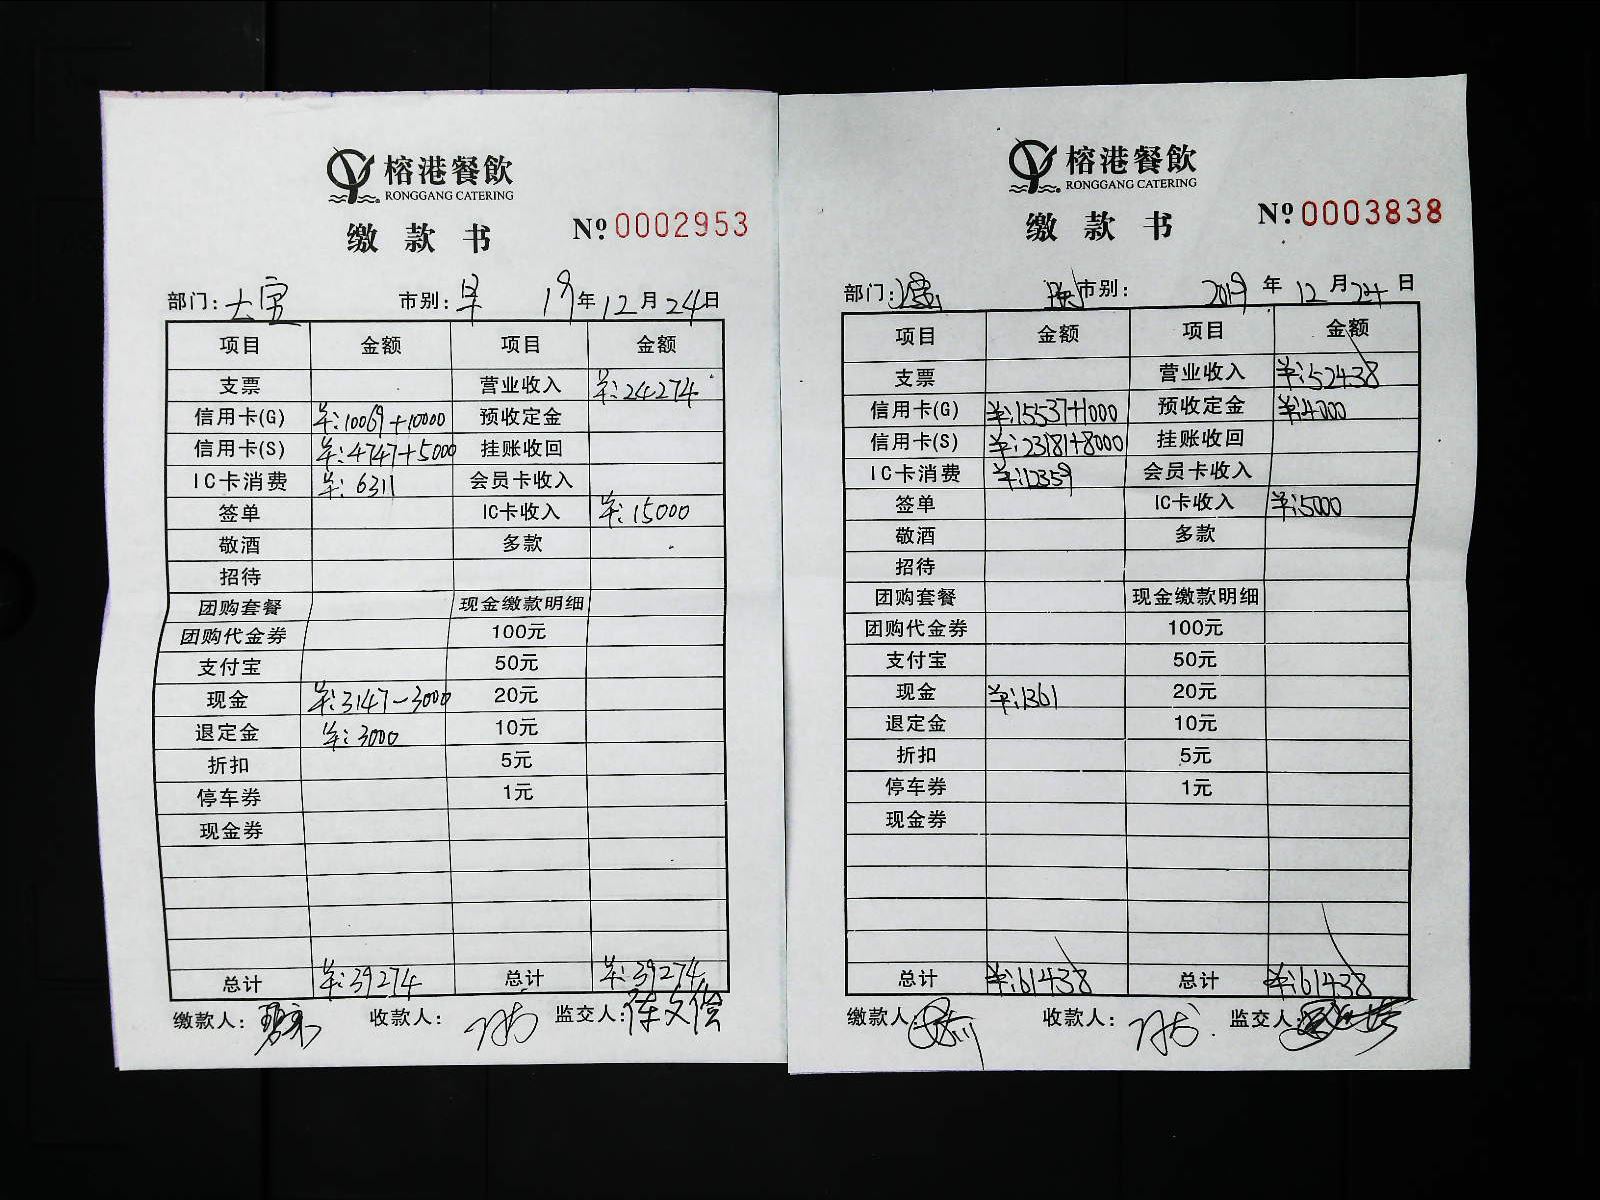 榕港餐飲
RONGGANG CATERING
缴款书
Nº 0002953
部门: 大宝 市别: 早 19年12月24日
项目 金额 项目 金额
支票 营业收入 ¥:24274
信用卡(G) ¥:10069+10000 预收定金
信用卡(S) ¥:4747+5000 挂账收回
IC卡消费 ¥:6311 会员卡收入
签单 IC卡收入 ¥:15000
敬酒 多款
招待
团购套餐 现金缴款明细
团购代金券 100元
支付宝 50元
现金 ¥:3147-3000 20元
退定金 ¥:3000 10元
折扣 5元
停车券 1元
现金券
总计 ¥:39274 总计 ¥:39274
缴款人: 收款人: 监交人:
榕港餐飲
RONGGANG CATERING
缴款书
Nº 0003838
部门: 市别: 2019年12月24日
项目 金额 项目 金额
支票 营业收入 ¥:52438
信用卡(G) ¥:15537+1000 预收定金 ¥:4000
信用卡(S) ¥:23181+8000 挂账收回
IC卡消费 ¥:12359 会员卡收入
签单 IC卡收入 ¥:5000
敬酒 多款
招待
团购套餐 现金缴款明细
团购代金券 100元
支付宝 50元
现金 ¥:1361 20元
退定金 10元
折扣 5元
停车券 1元
现金券
总计 ¥:61438 总计 ¥:61438
缴款人 收款人: 监交人: